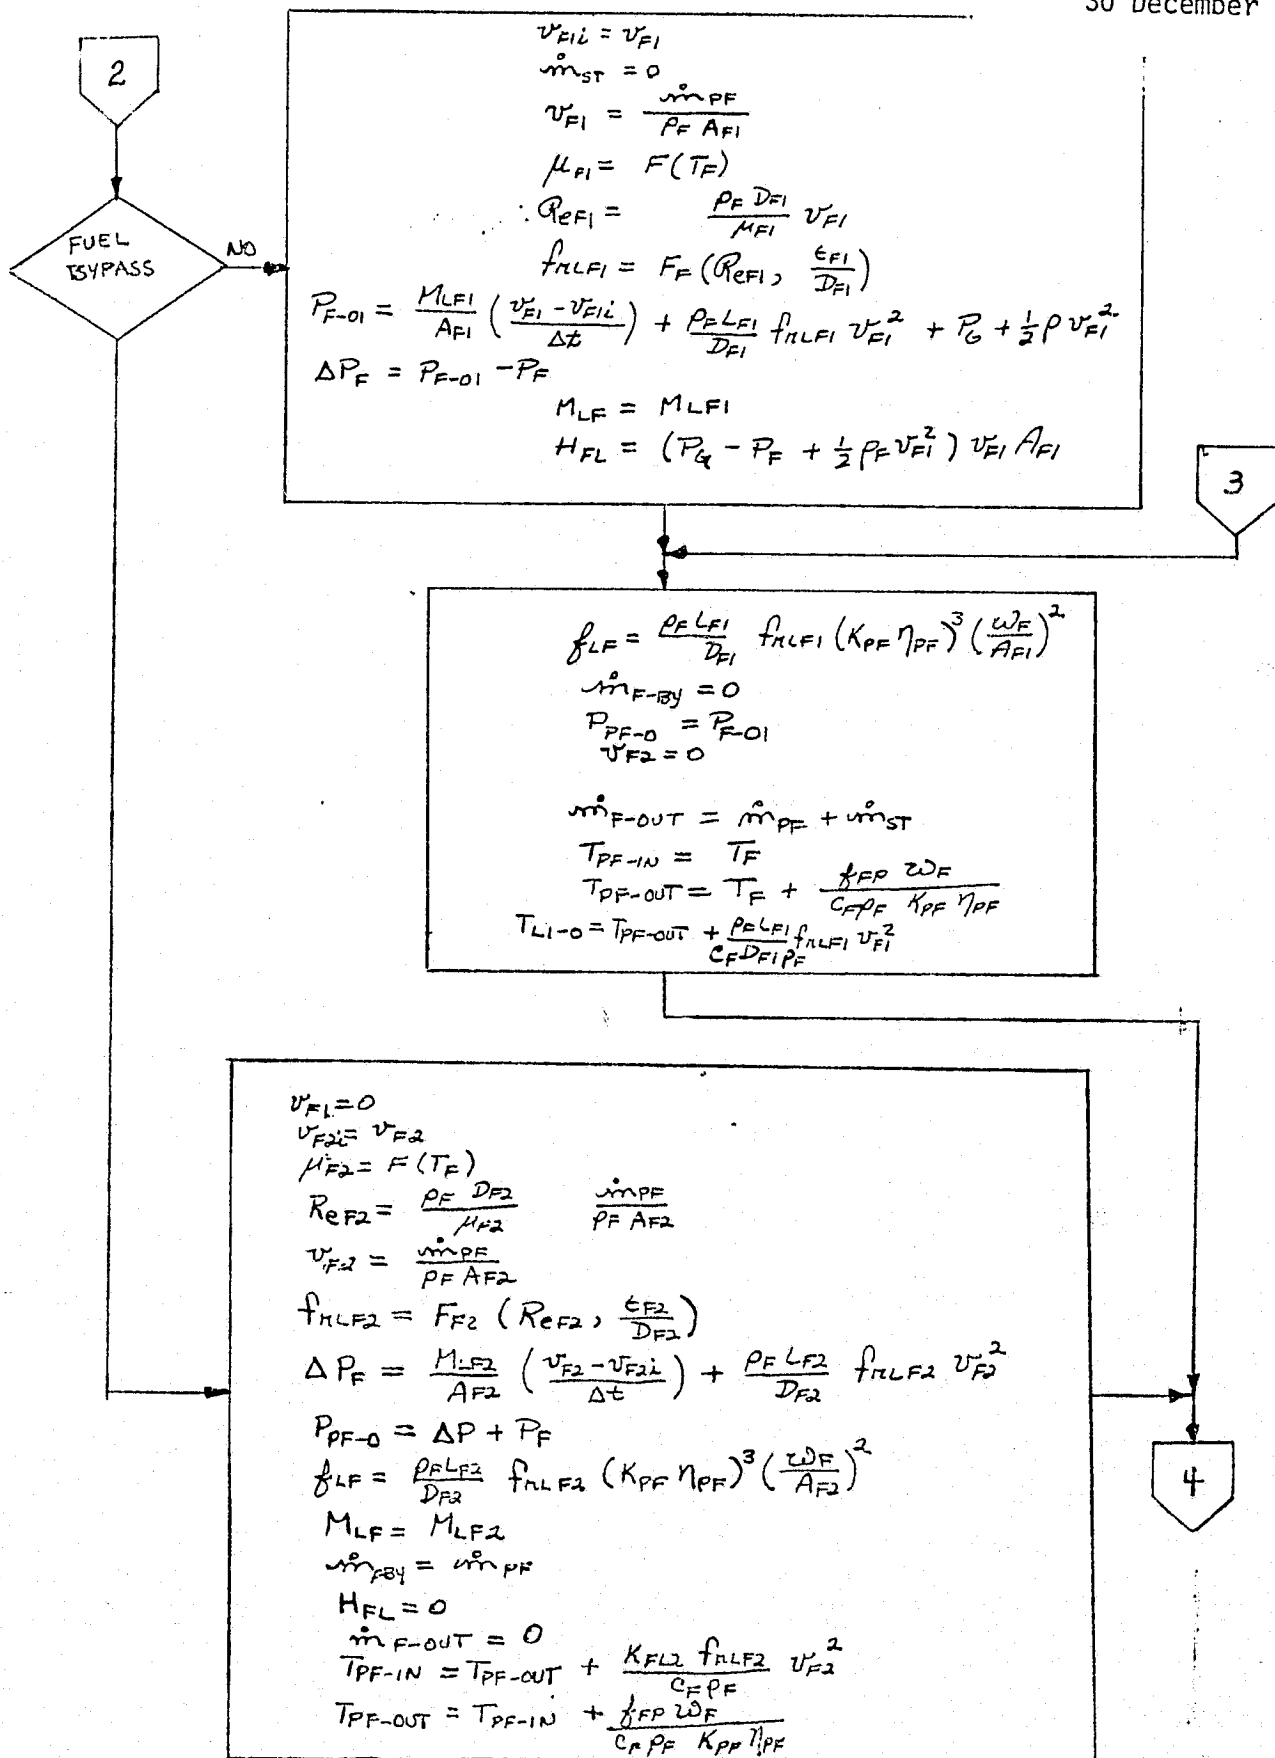 30 December
2
v_{F1i} = v_{F1}
ṁ_{ST} = 0
v_{F1} = ṁ_{PF} / (ρ_F A_{F1})
μ_{F1} = F(T_F)
Re_{F1} = (ρ_F D_{F1} / μ_{F1}) v_{F1}
f_{rLF1} = F_F (Re_{F1}, ε_{F1} / D_{F1})
P_{F-01} = (M_{LF1} / A_{F1}) ((v_{F1} - v_{F1i}) / Δt) + (ρ_F L_{F1} / D_{F1}) f_{rLF1} v_{F1}² + P_G + ½ ρ v_{F1}²
ΔP_F = P_{F-01} - P_F
M_{LF} = M_{LF1}
H_{FL} = (P_G - P_F + ½ ρ_F v_{F1}²) v_{F1} A_{F1}
FUEL
BYPASS
NO
3
f_{LF} = (ρ_F L_{F1} / D_{F1}) f_{rLF1} (K_{PF} η_{PF})³ (ω_F / A_{F1})²
ṁ_{F-BY} = 0
P_{PF-0} = P_{F-01}
v_{F2} = 0
ṁ_{F-OUT} = ṁ_{PF} + ṁ_{ST}
T_{PF-IN} = T_F
T_{PF-OUT} = T_F + (f_{FP} ω_F) / (C_F ρ_F K_{PF} η_{PF})
T_{L1-0} = T_{PF-OUT} + (ρ_F L_{F1} / (C_F D_{F1} ρ_F)) f_{rLF1} v_{F1}²
v_{F1} = 0
v_{F2i} = v_{F2}
μ_{F2} = F(T_F)
Re_{F2} = (ρ_F D_{F2} / μ_{F2}) ṁ_{PF} / (ρ_F A_{F2})
v_{F2} = ṁ_{PF} / (ρ_F A_{F2})
f_{rLF2} = F_{F2} (Re_{F2}, ε_{F2} / D_{F2})
ΔP_F = (M_{LF2} / A_{F2}) ((v_{F2} - v_{F2i}) / Δt) + (ρ_F L_{F2} / D_{F2}) f_{rLF2} v_{F2}²
P_{PF-0} = ΔP + P_F
f_{LF} = (ρ_F L_{F2} / D_{F2}) f_{rLF2} (K_{PF} η_{PF})³ (ω_F / A_{F2})²
M_{LF} = M_{LF2}
ṁ_{FBY} = ṁ_{PF}
H_{FL} = 0
ṁ_{F-OUT} = 0
T_{PF-IN} = T_{PF-OUT} + (K_{FL2} f_{rLF2} / (C_F ρ_F)) v_{F2}²
T_{PF-OUT} = T_{PF-IN} + (f_{FP} ω_F) / (C_F ρ_F K_{PF} η_{PF})
4